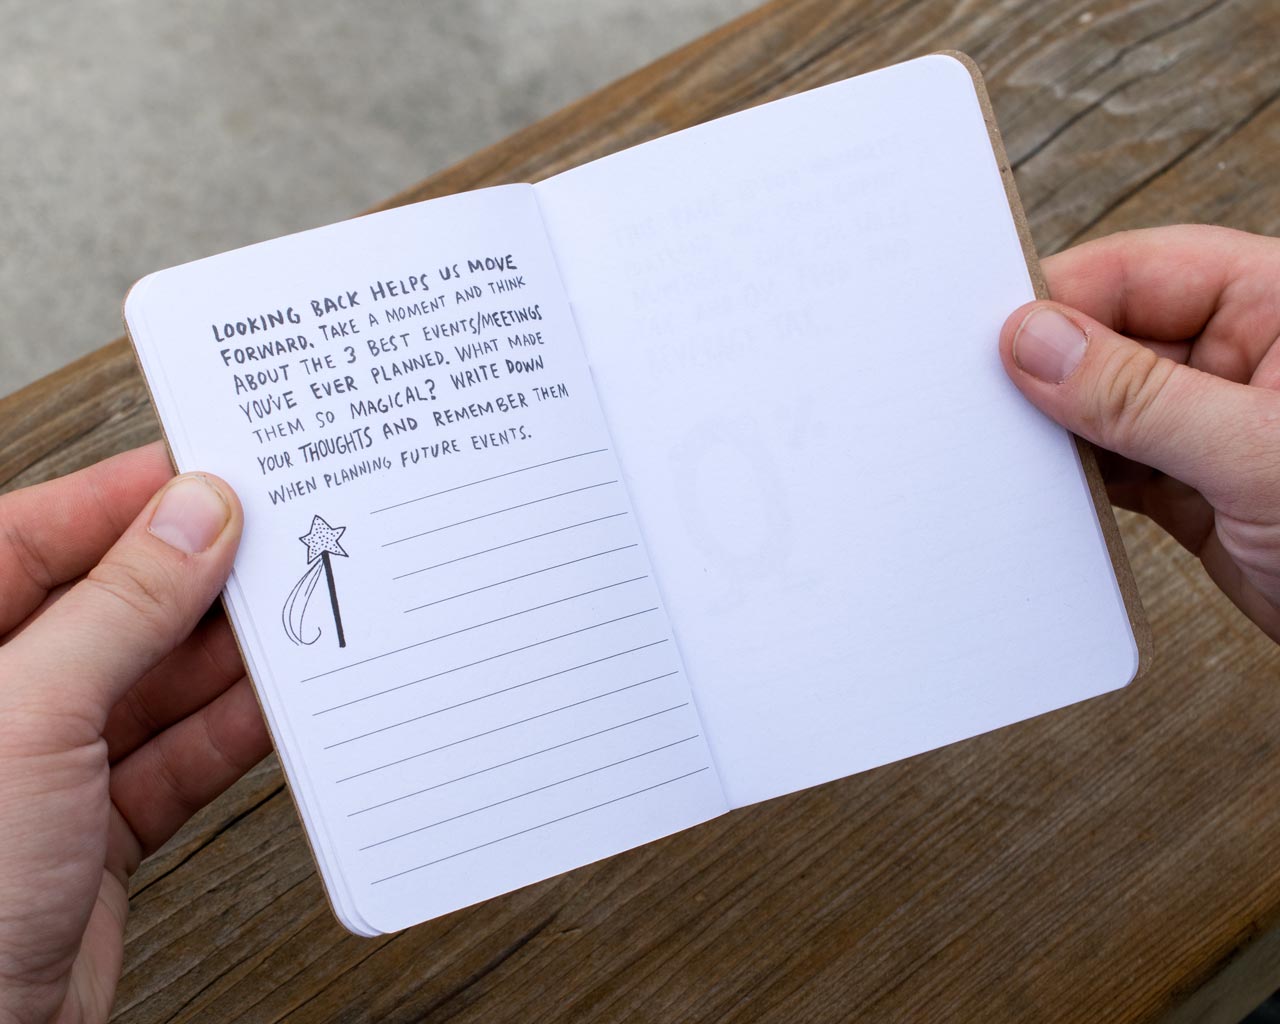 LOOKING BACK HELPS US MOVE
FORWARD. TAKE A MOMENT AND THINK
ABOUT THE 3 BEST EVENTS/MEETINGS
YOU'VE EVER PLANNED. WHAT MADE
THEM SO MAGICAL? WRITE DOWN
YOUR THOUGHTS AND REMEMBER THEM
WHEN PLANNING FUTURE EVENTS.